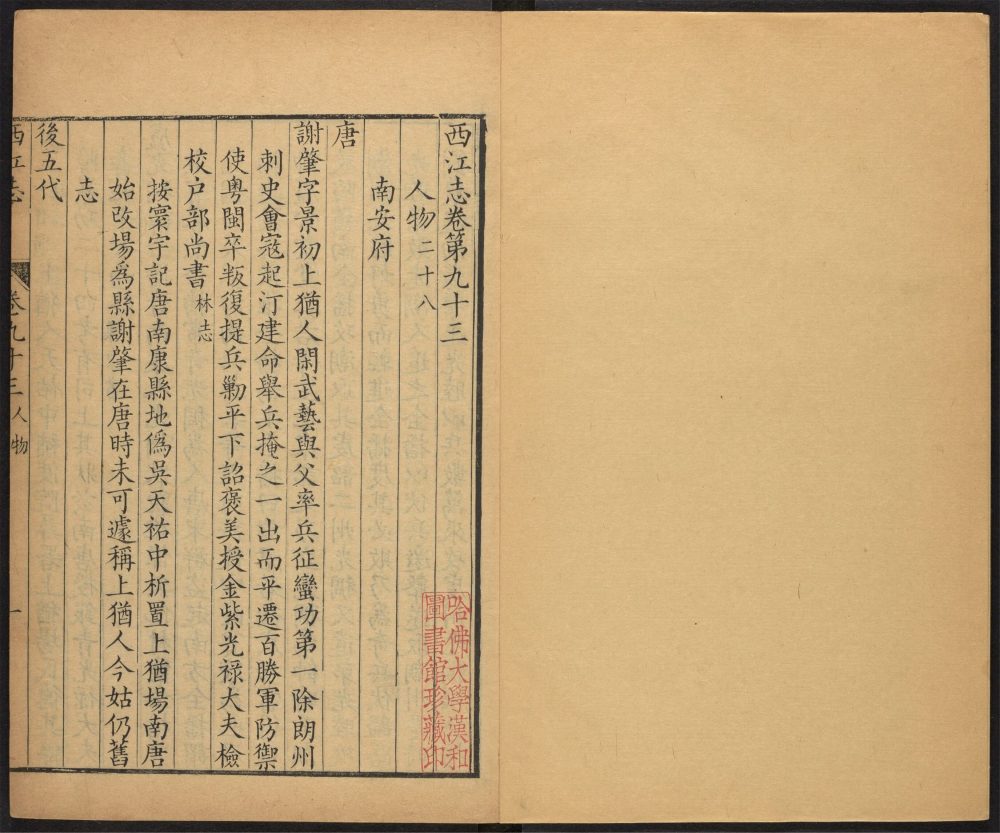 西江志卷第九十三
人物二十八
南安府
唐
謝肇字景初上猶人閑武藝與父率兵征蠻功第一除朗州
刺史會寇起汀建命舉兵掩之一出而平遷百勝軍防禦
使粵閩卒叛復提兵勦平下詔褒美授金紫光祿大夫檢
校户部尚書林志
按寰宇記唐南康縣地僞吳天祐中析置上猶場南唐
始改場爲縣謝肇在唐時未可遽稱上猶人今姑仍舊
志
後五代
西江志
卷九十三人物
一
哈佛大學漢和
圖書館珍藏印